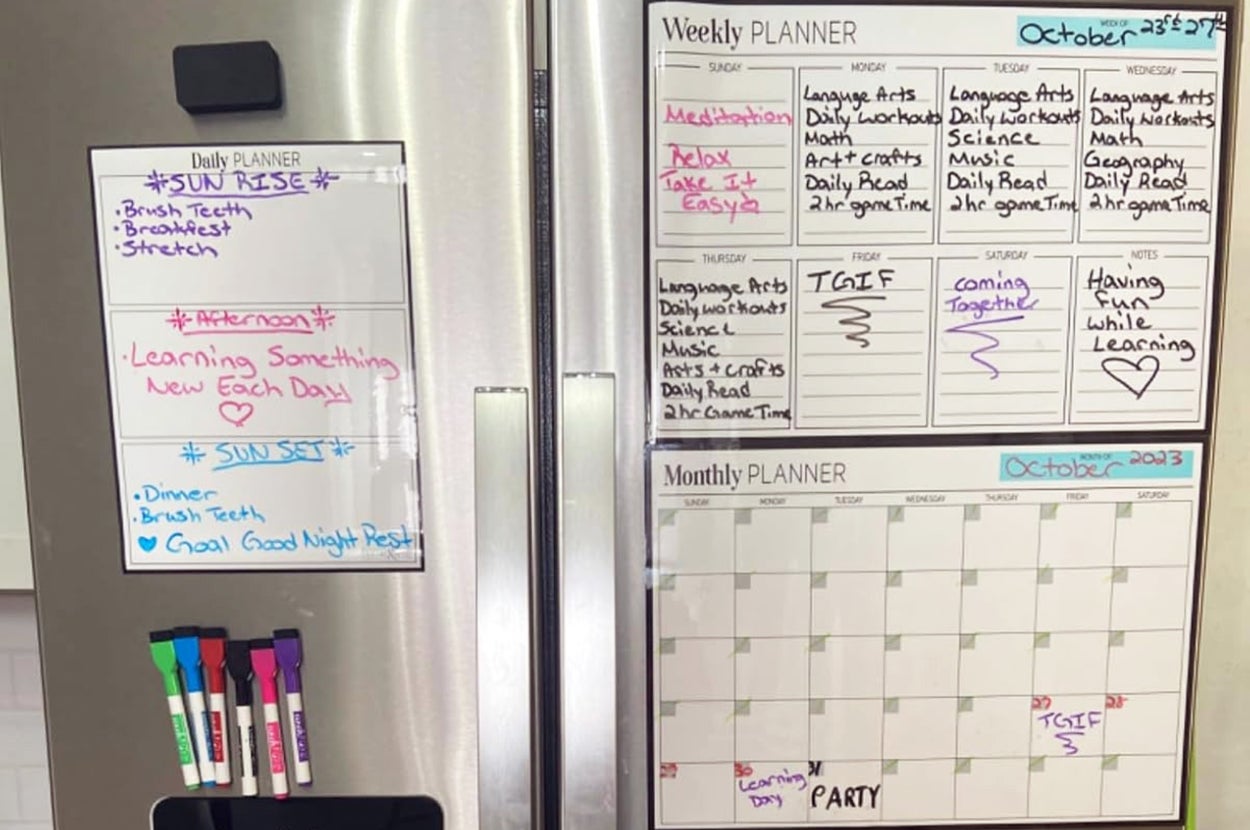 Daily PLANNER
SUN RISE
• Brush Teeth
• Breakfest
• Stretch
Afternoon
• Learning Something
New Each Day
SUN SET
• Dinner
• Brush Teeth
Goal Good Night Rest
Weekly PLANNER
WEEK OF
October 23rd 27th
SUNDAY
Meditation
Relax
Take It
Easy
MONDAY
Languge Arts
Daily Workouts
Math
Art + crafts
Daily Read
2hr gameTime
TUESDAY
Language Arts
Daily Workouts
Science
Music
Daily Read
2hr gameTime
WEDNESDAY
Language Arts
Daily Workouts
Math
Geography
Daily Read
2hr gameTime
THURSDAY
Language Arts
Daily workouts
Science
Music
Arts + Crafts
Daily Read
2hr Game Time
FRIDAY
TGIF
SATURDAY
coming
Together
NOTES
Having
fun
while
Learning
Monthly PLANNER
MONTH OF
October 2023
SUNDAY MONDAY TUESDAY WEDNESDAY THURSDAY FRIDAY SATURDAY
27 28
TGIF
29 30 31
Learning
Day
PARTY